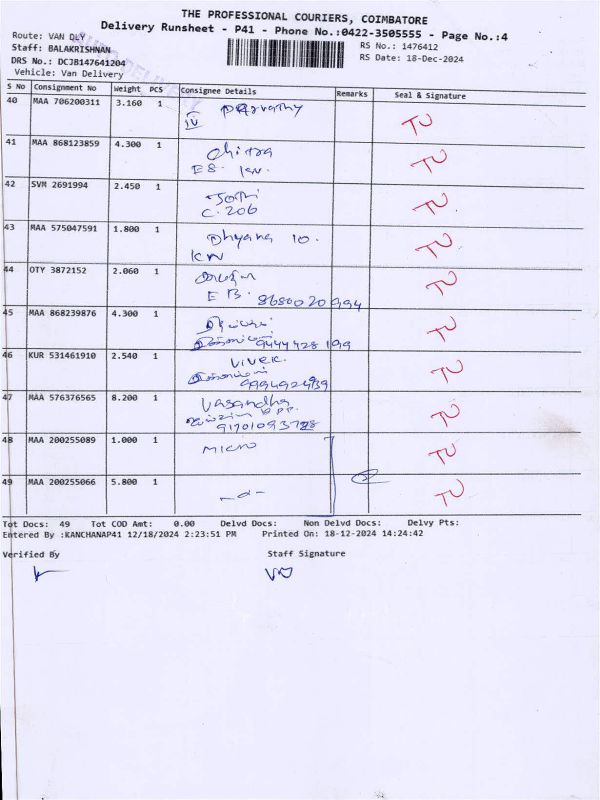 THE PROFESSIONAL COURIERS, COIMBATORE
Delivery Runsheet - P41 - Phone No.:0422-3505555 - Page No.:4
Route: VAN DLY
RS No.: 1476412
Staff: BALAKRISHNAN
RS Date: 18-Dec-2024
DRS No.: DCJB147641204
Vehicle: Van Delivery
S No Consignment No Weight PCS Consignee Details Remarks Seal & Signature
40 MAA 706200311 3.160 1 IV Parvathy TU
41 MAA 868123859 4.300 1 Chitra TU
E8. KN.
42 SVM 2691994 2.450 1 Jothi TU
C. 206
43 MAA 575047591 1.800 1 Dhyana 10. TU
KN
44 OTY 3872152 2.060 1 TU
EB. 8680020994
45 MAA 868239876 4.300 1 TU
9444428199
46 KUR 531461910 2.540 1 Vivek. TU
47 MAA 576376565 8.200 1 Vasandha TU
opp.
48 MAA 200255089 1.000 1 micro TU
49 MAA 200255066 5.800 1 TU
Tot Docs: 49 Tot COD Amt: 0.00 Delvd Docs: Non Delvd Docs: Delvy Pts:
Entered By :KANCHANAP41 12/18/2024 2:23:51 PM Printed On: 18-12-2024 14:24:42
Verified By Staff Signature